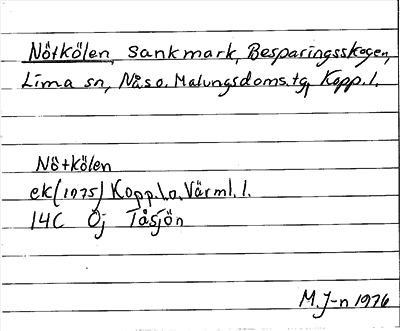 Nötkölen, sankmark, Besparingsskogen,
Lima sn, Nås o. Malungsdoms.tg, Kopp.l.
Nötkölen
ek(1975) Kopp.l.o.Värml.l.
14C Öj Tåsjön
M.J-n 1976